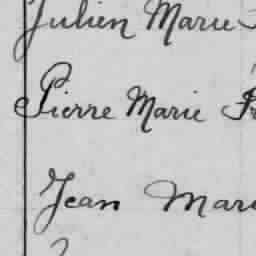 Julien Marie
Pierre Marie
Jean